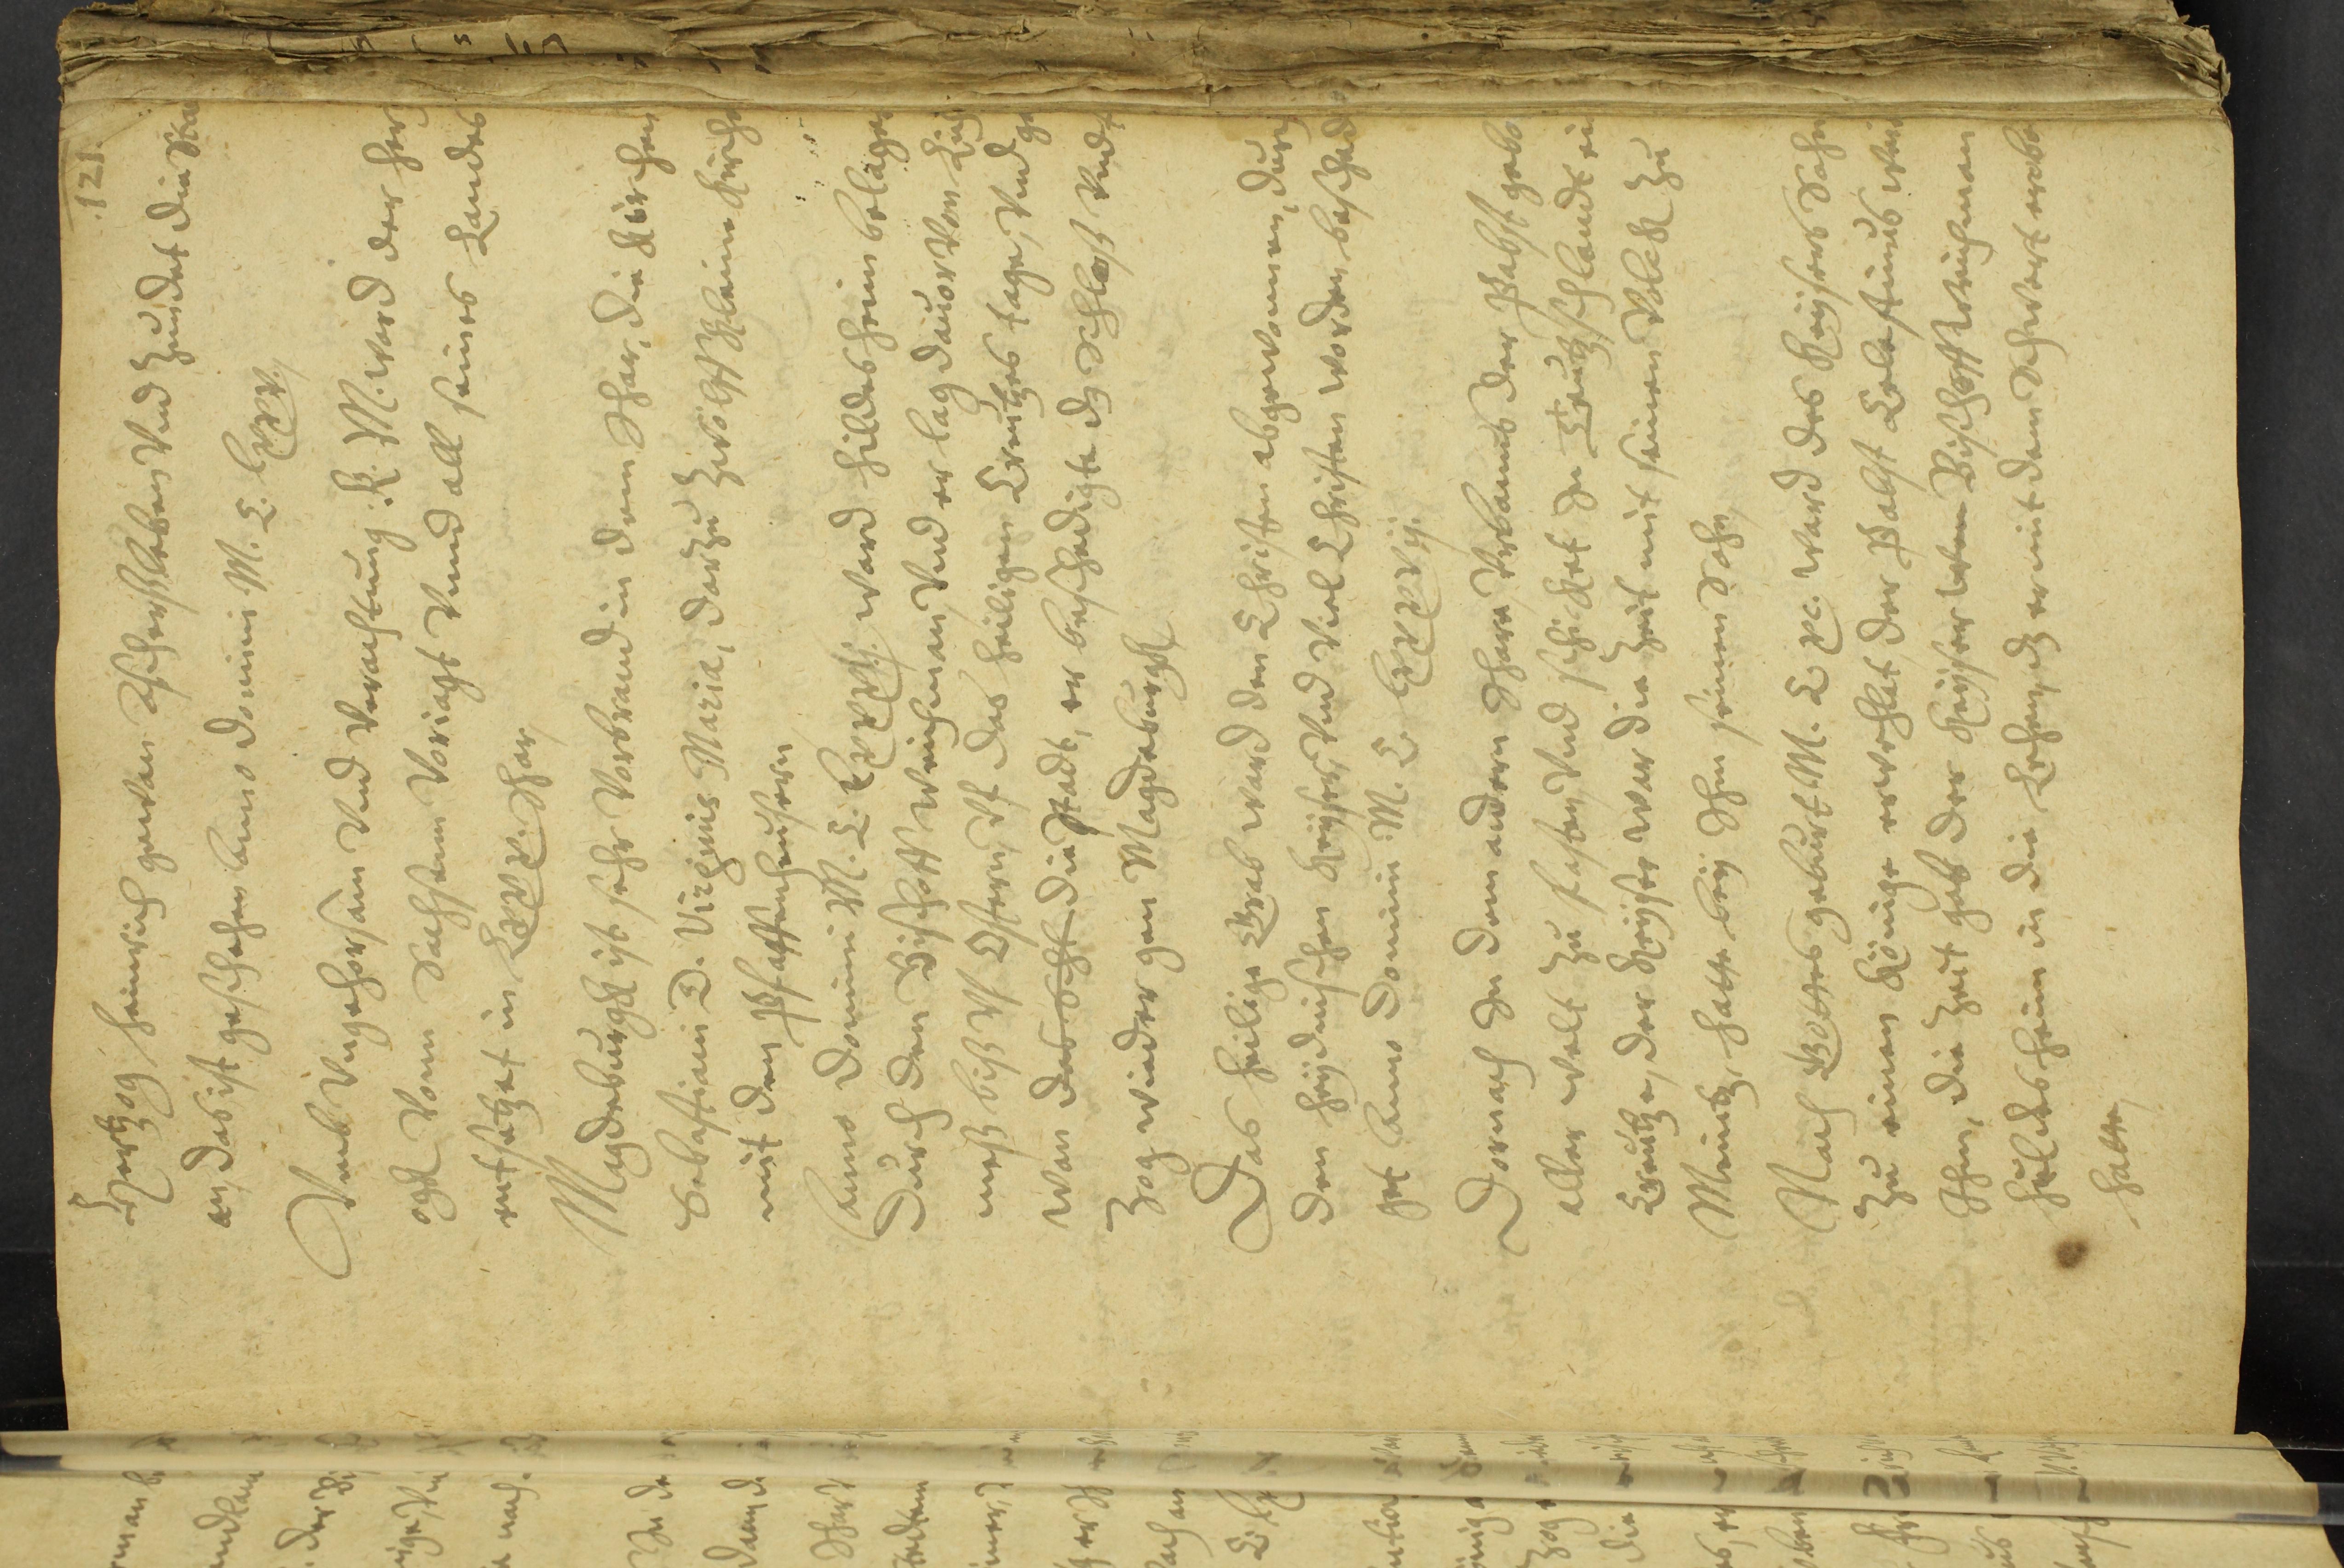 121.
Hertzog Heinrich gewan Aschersleben Vnd Zundet die Sta
an, das ist geschehen Anno Domini M. C. LXXX.
Vmb Vngehorsam Vnd Verachtung K. M. ward der Her
ogk Vonn Sachssenn Voriagt Vnnd all seines Landes
entsatzet in LXXX. Jhar,
Magdeburgk ist sehr Vorbrand in dem Jhar, die Kirchen
Sebastiani D. Virginis Maria, darzu Zwölff Kleine Kirche
mit den Pfaffenheusern
Anno Domini M. C. LXXXII. ward Hildesheim belagert
durch den Bischoff Weichman, Vnd er lag dauor Von
meß biß Vf Ostern, Vf des heiligen Creutzes tage, Vnd ge
wan die Stadt, er beschedigte dz Schloß Vnd
Zog wieder gen Magdeburgk
Das heilige Grab ward den Christen abgewonnen, durch
den heydnischen Keyser, Vnd Viel Christen worden beschedi
get Anno Domini M. C. LXXXVII.
Dornach In dem andern Jhare Vrbanus der Pabst gebo
aller welt zu fasten, Vnd schicket In Teutzschlandt ein
Creutze, der Keyser war die Zeit mit seinen Volck Zu
Meintz, hatte bey Ihm seinen Sohn,
Nach Gottes geburt M. C XC. ward des Keysers Sohn
Zu einen Könige erwehlet, der Pabst Celestinus
Ihn, die Zeit gab der Keyser dem Bischoff Weichman
Hildesheim in die Lehen, dz er mit dem Schwert erobe
hatte,